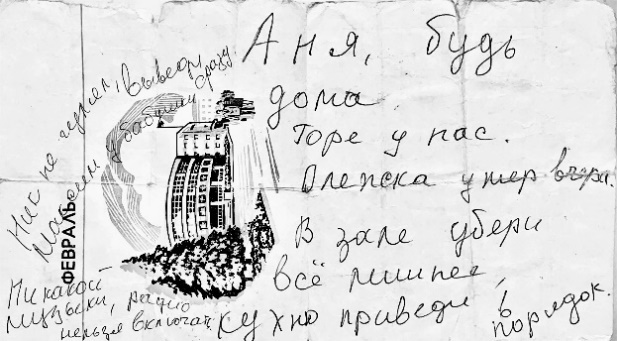 Аня, будь
дома.
Горе у нас.
Олежка умер вчера.
В зале убери
всё лишнее,
кухню приведи в
порядок.
Ник не гулял, выведи сразу
Максим у бабушки
Никакой
музыки, радио
нельзя включать
ФЕВРАЛЬ